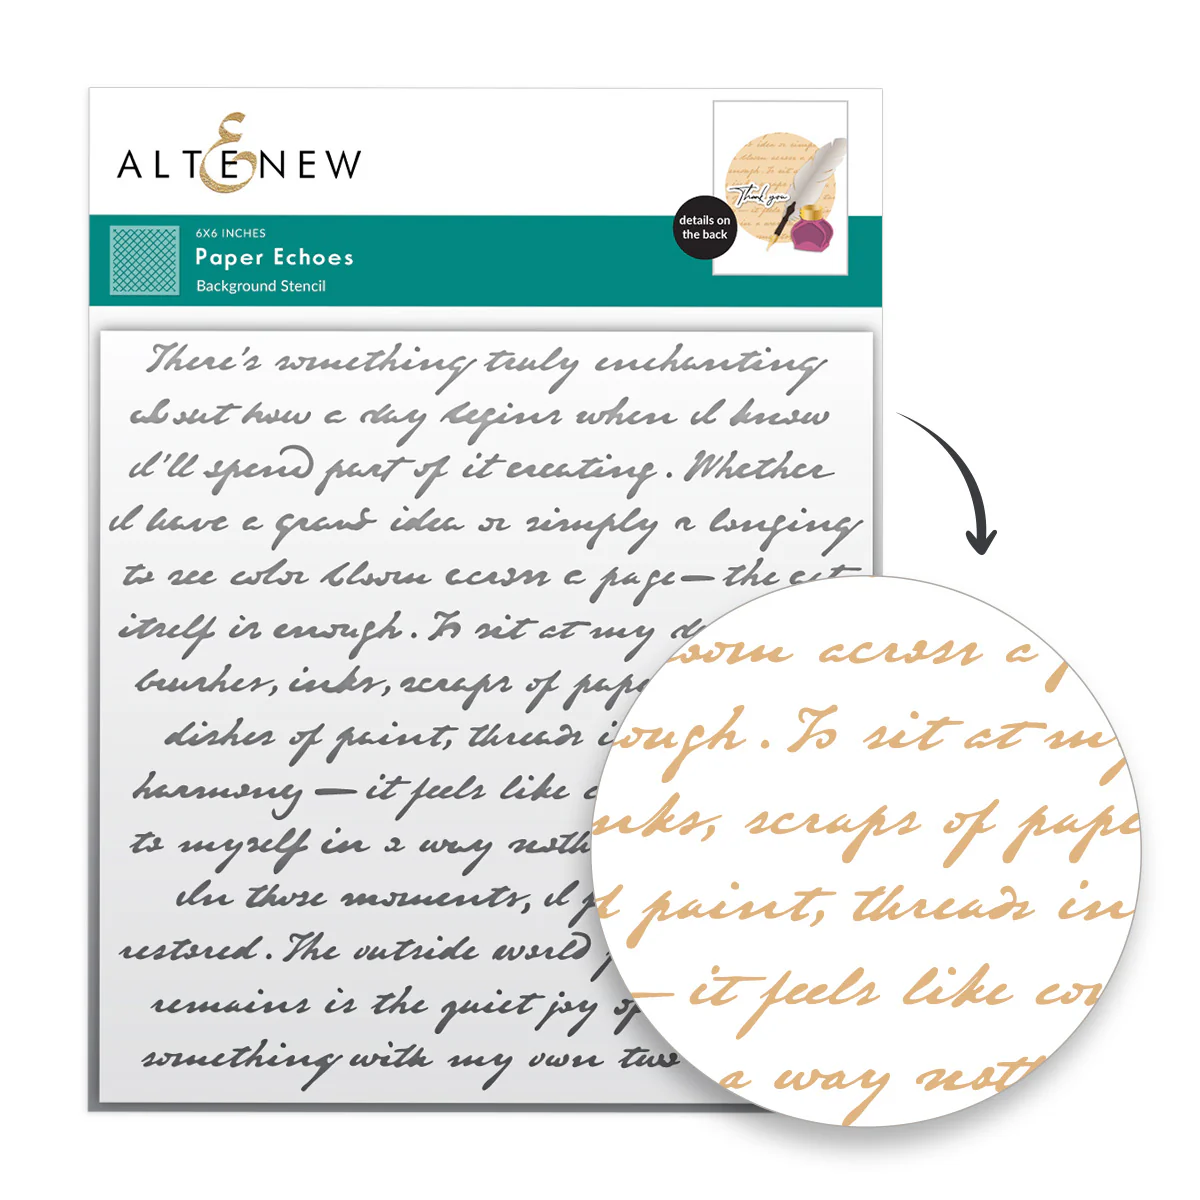 ALTENEW
6X6 INCHES
Paper Echoes
Background Stencil
details on
the back
Thank you
There's something truly enchanting
about how a day begins when I know
I'll spend part of it creating. Whether
I have a grand idea or simply a longing
to see color bloom across a page—the act
itself is enough. To sit at my
brushes, inks, scraps of pape
dishes of paint, threads i
harmony — it feels like c
to myself in a way noth
In those moments, I f
restored. The outside world
remains is the quiet joy of
something with my own two
loom across a p
ough. To sit at my
nks, scraps of pape
f paint, threads in
— it feels like con
a way noth